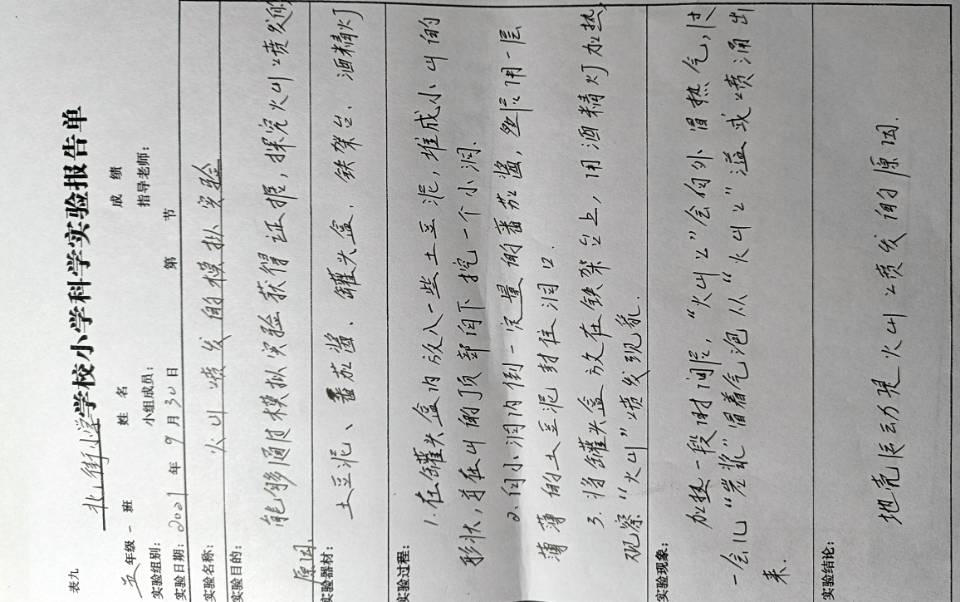 表九
北街小学学校小学科学实验报告单
五年级一班 姓名 成绩
实验组别: 小组成员: 指导老师:
实验日期: 2021年9月30日 第 节
实验名称: 火山喷发的模拟实验
实验目的:
能够通过模拟实验获得证据,探究火山喷发的
原因.
实验器材: 土豆泥、番茄酱、罐头盒、铁架台、酒精灯
实验过程:
1.在罐头盒内放入一些土豆泥,堆成小山的
形状,并在山的顶部向下挖一个小洞.
2.向小洞内倒一定量的番茄酱,然后用一层
薄薄的土豆泥封住洞口.
3.将罐头盒放在铁架台上,用酒精灯加热,
观察“火山”喷发现象.
实验现象:
加热一段时间后,“火山口”会向外冒热气,过
一会儿“岩浆”冒着气泡从“火山口”溢或喷涌出
来.
实验结论:
地壳运动是火山喷发的原因.